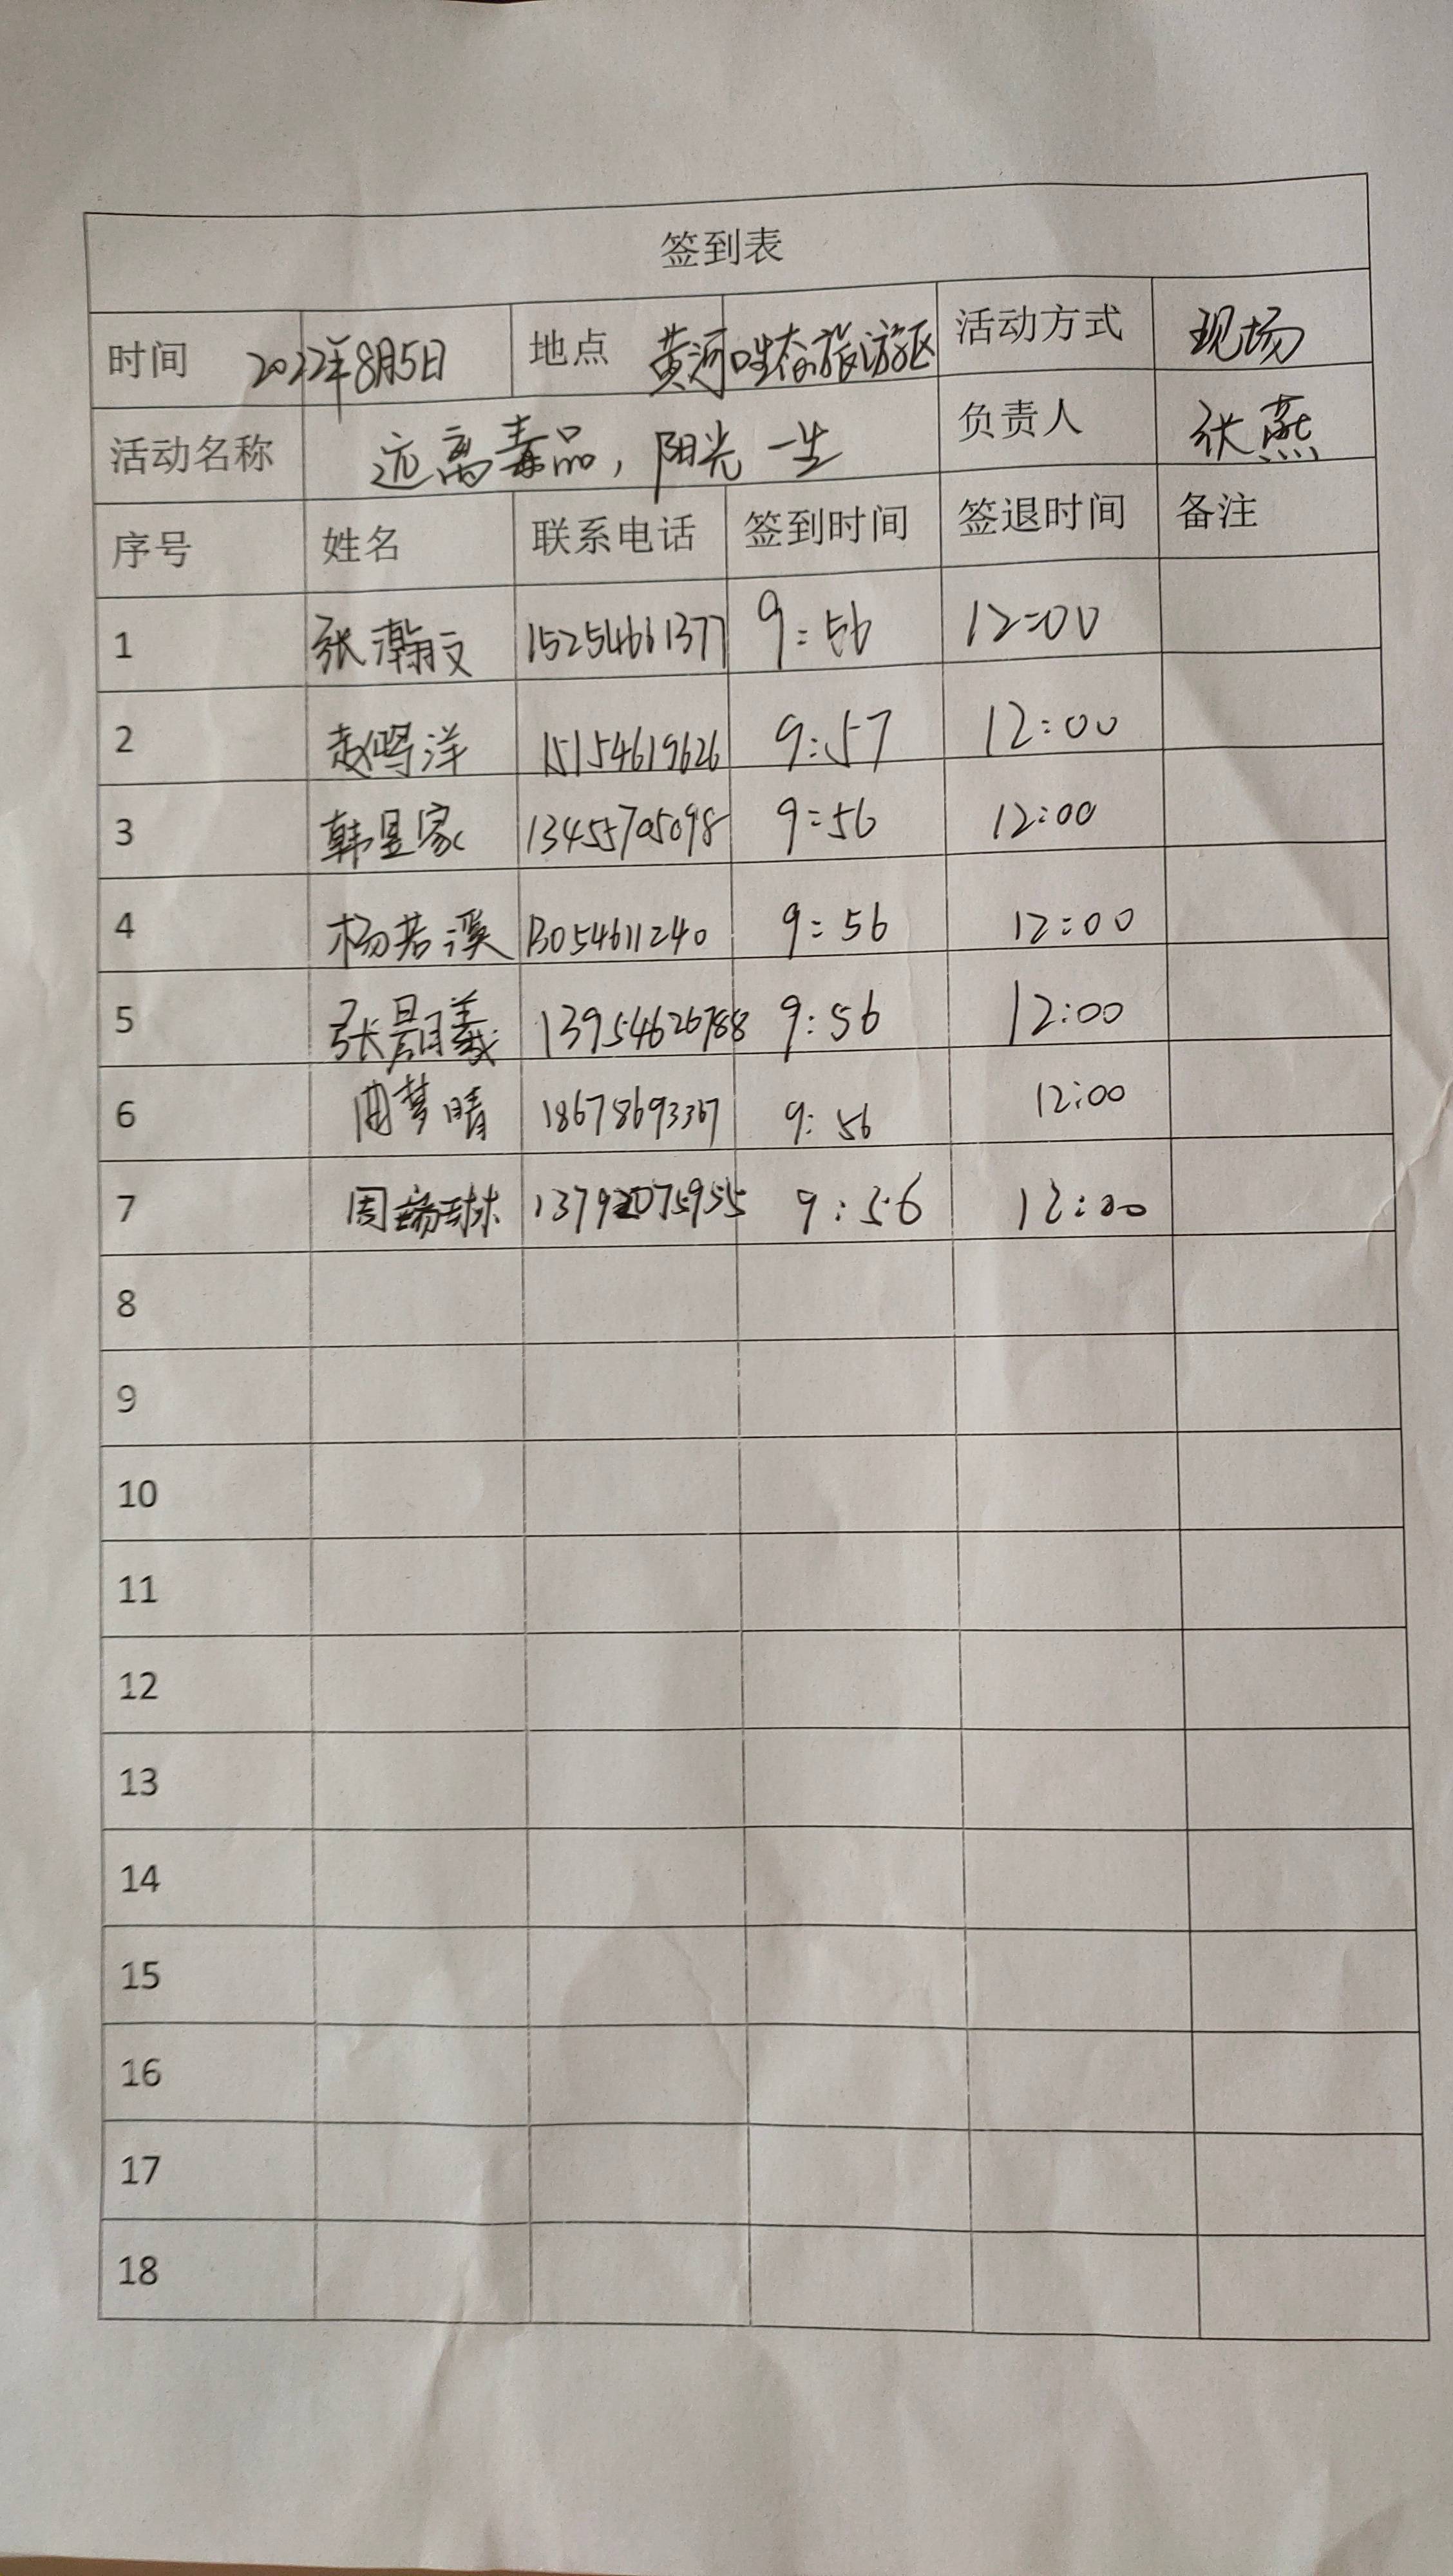 签到表
时间 2022年8月5日 地点 黄河口生态旅游区 活动方式 现场
活动名称 远离毒品，阳光一生 负责人 张燕
序号 姓名 联系电话 签到时间 签退时间 备注
1 张瀚文 15254661377 9:56 12:00
2 赵鸣洋 15154619626 9:57 12:00
3 韩昱家 13455705098 9:56 12:00
4 杨若溪 13054611240 9:56 12:00
5 张 曦 13954626788 9:56 12:00
6 梦晴 18678693367 9:56 12:00
7 周 琳 13792075955 9:56 12:00
8
9
10
11
12
13
14
15
16
17
18